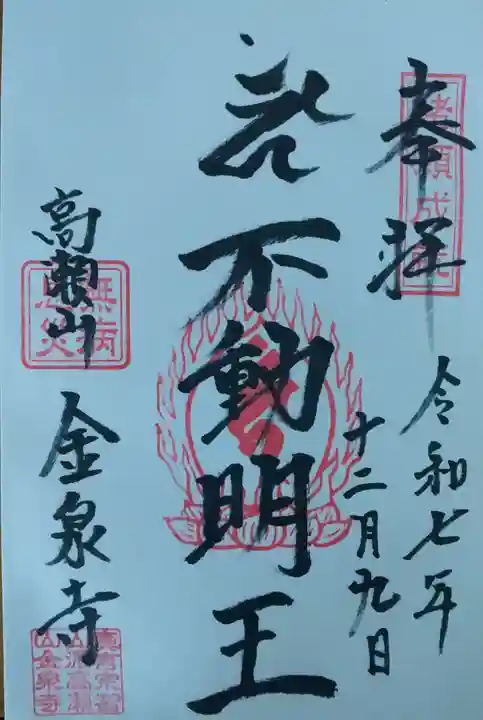 奉拝
諸願成就
令和七年
十二月九日
不動明王
高瀬山
無病
息災
金泉寺